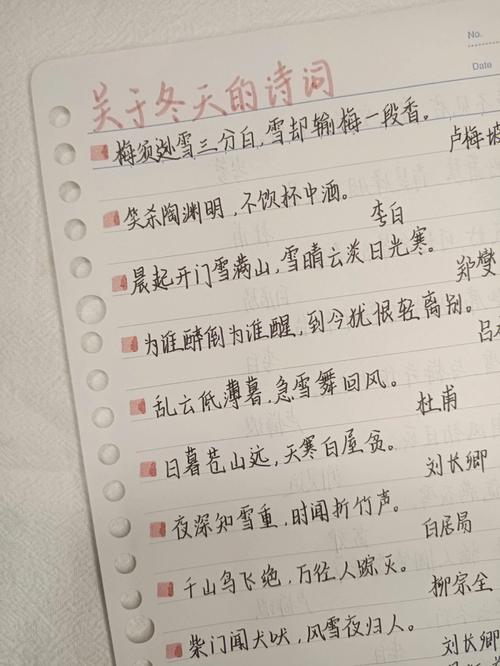 No.
Date
关于冬天的诗词
梅须逊雪三分白,雪却输梅一段香。
卢梅坡
笑杀陶渊明,不饮杯中酒。
李白
晨起开门雪满山,雪晴云淡日光寒。
郑燮
为谁醉倒为谁醒,到今犹恨轻离别。
吕
乱云低薄暮,急雪舞回风。
杜甫
日暮苍山远,天寒白屋贫。
刘长卿
夜深知雪重,时闻折竹声。
白居易
千山鸟飞绝,万径人踪灭。
柳宗元
柴门闻犬吠,风雪夜归人。
刘长卿